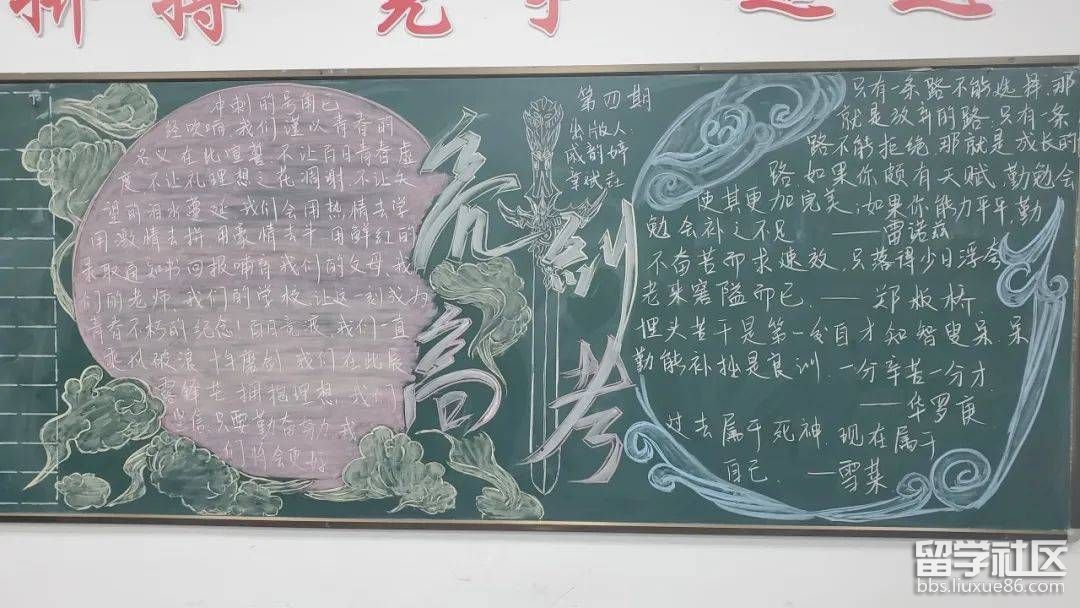 拼搏 竞争
冲刺的号角已
经吹响,我们谨以青春的
名义在此宣誓,不让百日青春虚
度,不让孔理想之花凋谢,不让失
望的泪水蔓延,我们会用热情去学
用激情去拼,用豪情去斗,用鲜红的
录取通知书回报哺育我们的父母、我
们的老师、我们的学校,让这一刻成为
青春不朽的纪念!百日竞渡,我们一直
乘风破浪,十年磨剑,我们在此辰
露锋芒,拥抱理想,我们
坚信只要勤奋努力,我
们将会更好
亮剑
高考
第四期
出版人:
成韵婷
只有一条路不能选择,那
就是放弃的路,只有一条
路不能拒绝,那就是成长的
路.如果你颇有天赋,勤勉会
使其更加完美;如果你能力平平,勤
勉会补之不足 ——雷诺兹
不奋苦而求速效,只落得少日浮夸
老来窘隘而已. ——郑板桥
埋头苦干是第一,发白才知智叟呆.
勤能补拙是良训,一分辛苦一分才.
——华罗庚
过去属于死神,现在属于
自己. ——雪莱
留学社区
bbs.liuxue86.com